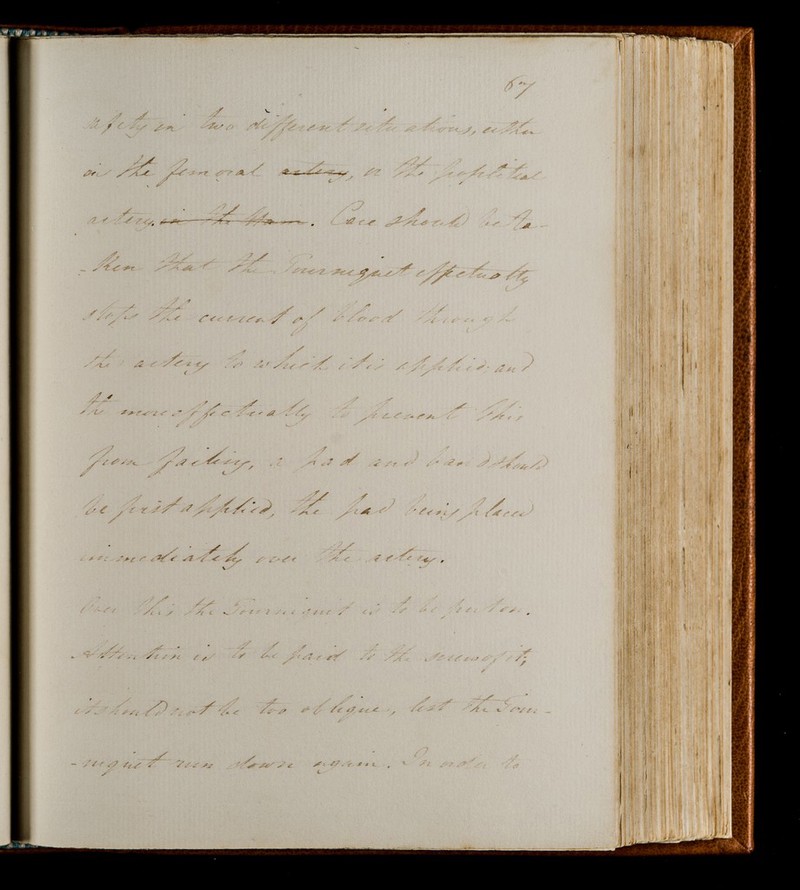 67
safety in two different situations, either
on the femoral artery, or the popliteal
artery in the Ham. Care should be ta-
-ken that the Tourniquet effectually
stops the current of blood through
the artery to which it is applied: and
the more effectually to prevent this
from failing, a pad and band should
be first applied, the pad being placed
immediately over the artery.
Over this the Tourniquet is to be put on.
Attention is to be paid to the screw of it,
it should not be too oblique, lest the Tour-
-niquet run down again. In order to